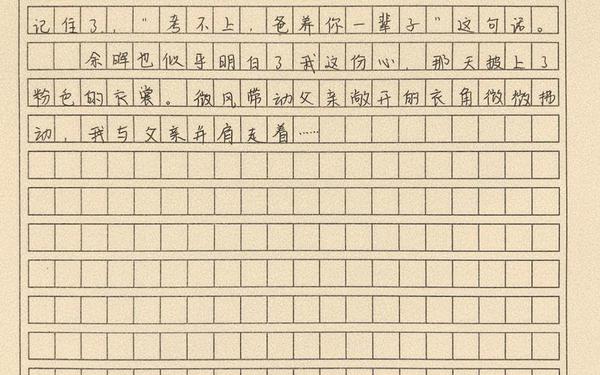 记住了，“考不上，爸养你一辈子”这句话。
余晖也似乎明白了我这份心，那天披上了
粉色的衣裳。微风带动父亲敞开的衣角微微扬
动，我与父亲并肩走着……